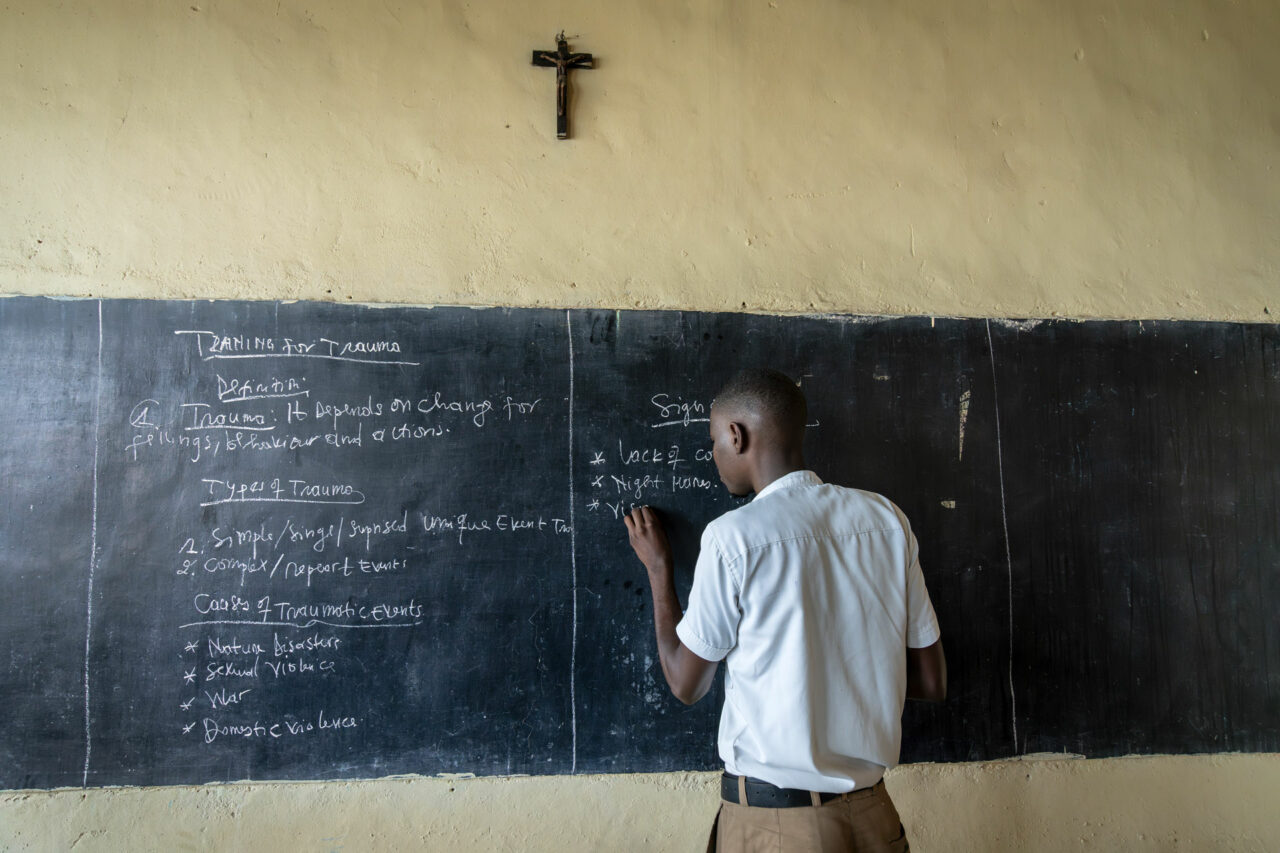 TRANING For Trauma
Definition:
1. Trauma: It Depends on change for
feelings, behaviour and actions.
Types of Trauma
1. Simple/singe/suprised unique Event Tra
2. Complex/repeart Events
Causes of Traumatic Events
* Nature Disasters
* Sexual Violence
* War
* Domestic violence
Sign
* Lack of co
* Night Mares.
* Vis